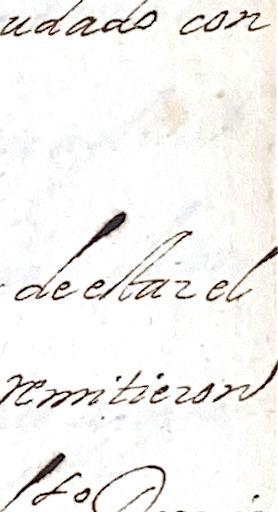 udado con
de estar el
remitieron